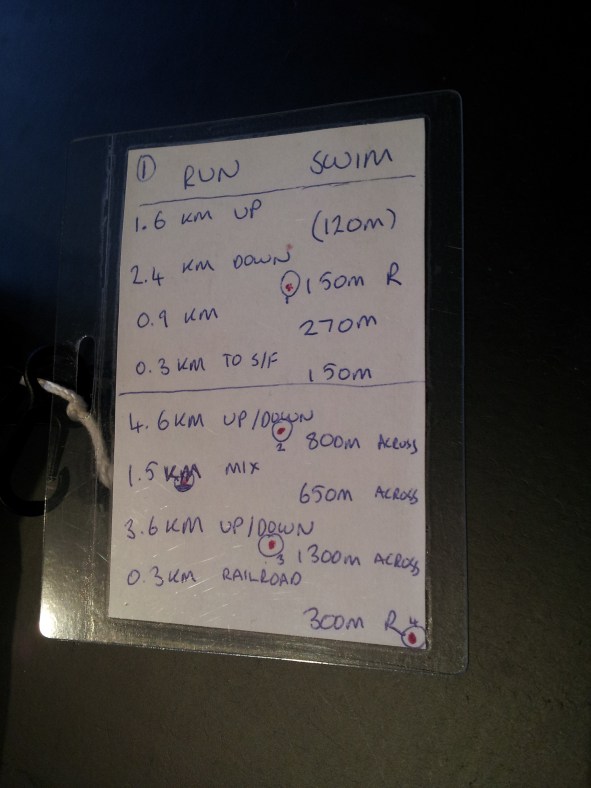 1 RUN SWIM
1.6 KM UP
(120m)
2.4 KM DOWN
1 150m R
0.9 KM
270m
0.3 KM TO S/F
150m
4.6 KM UP/DOWN
2 800m ACROSS
1.5 KM MIX
650m ACROSS
3.6 KM UP/DOWN
3 1300m ACROSS
0.3 KM RAILROAD
300m R 4